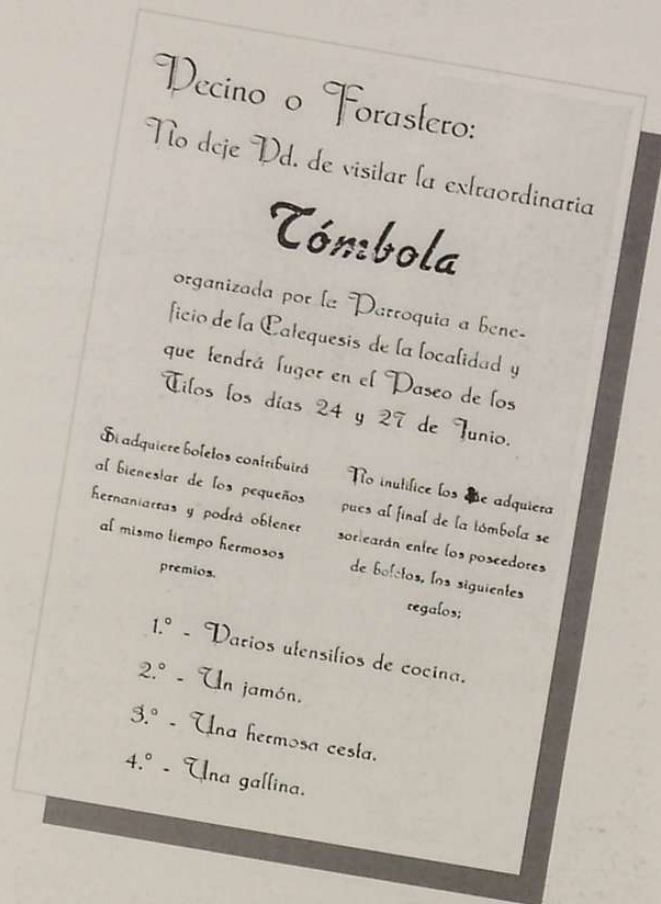 Vecino o Forastero:
No deje Vd. de visitar la extraordinaria
Tómbola
organizada por la Parroquia a bene-
ficio de la Catequesis de la localidad y
que tendrá lugar en el Paseo de los
Tilos los días 24 y 27 de Junio.
Si adquiere boletos contribuirá
al bienestar de los pequeños
hernaniarras y podrá obtener
al mismo tiempo hermosos
premios.
No inutilice los que adquiera
pues al final de la tómbola se
sortearán entre los poseedores
de boletos, los siguientes
regalos:
1.° - Varios utensilios de cocina.
2.° - Un jamón.
3.° - Una hermosa cesta.
4.° - Una gallina.